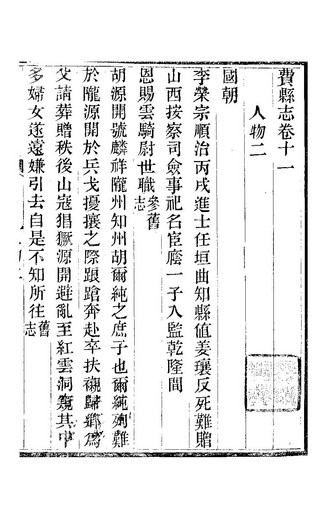 費縣志卷十一
人物二
國朝
李榮宗順治丙戌進士任垣曲知縣值姜瓖反死難贈
山西按察司僉事祀名宦廕一子入監乾隆間
恩賜雲騎尉世職參舊志
胡源開號麟祥隴州知州胡爾純之庶子也爾純殉難
於隴源開於兵戈擾攘之際踉蹌奔赴卒扶櫬歸鄉爲
父請葬贈秩後山寇猖獗源開避亂至紅雲洞窺其中
多婦女遂遠嫌引去自是不知所往舊志